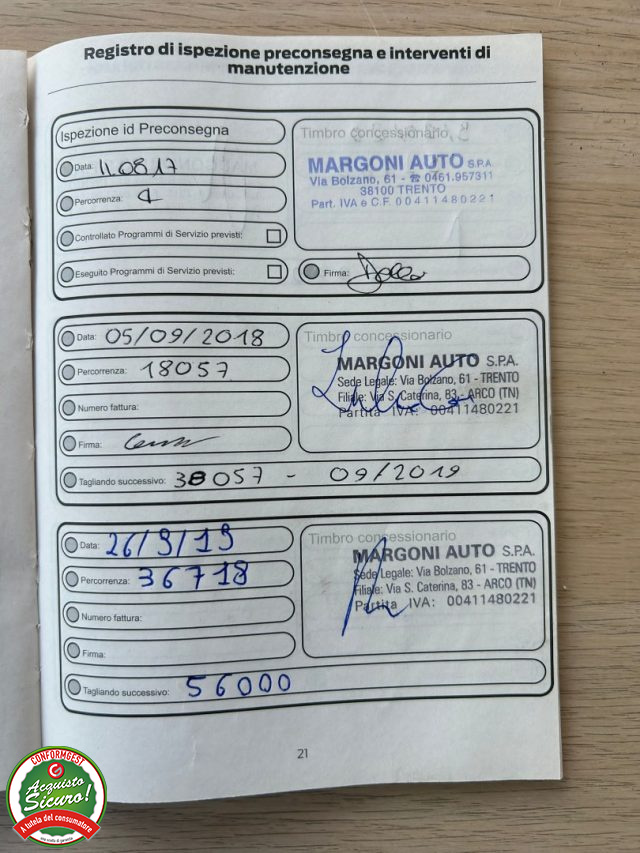 Registro di ispezione preconsegna e interventi di
manutenzione
Ispezione id Preconsegna
Data: 110817
Percorrenza: 1
Controllato Programmi di Servizio previsti:
Eseguito Programmi di Servizio previsti:
Timbro concessionario
MARGONI AUTO S.P.A.
Via Bolzano, 61 - ☎ 0461.957311
38100 TRENTO
Part. IVA e C.F. 00411480221
Firma:
Data: 05/09/2018
Percorrenza: 18057
Numero fattura:
Firma:
Tagliando successivo: 38057 - 09/2019
Timbro concessionario
MARGONI AUTO S.P.A.
Sede Legale: Via Bolzano, 61 - TRENTO
Filiale: Via S. Caterina, 83 - ARCO (TN)
Partita IVA: 00411480221
Data: 26/9/19
Percorrenza: 36718
Numero fattura:
Firma:
Tagliando successivo: 56000
Timbro concessionario
MARGONI AUTO S.P.A.
Sede Legale: Via Bolzano, 61 - TRENTO
Filiale: Via S. Caterina, 83 - ARCO (TN)
Partita IVA: 00411480221
21
CONFORMGEST
Acquisto
Sicuro!
A tutela del consumatore